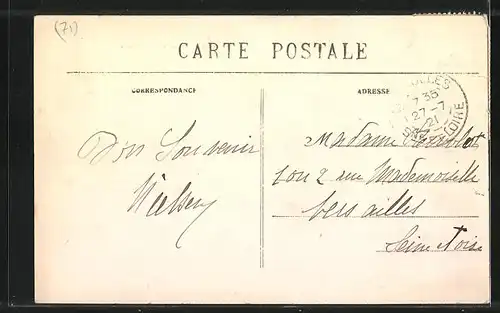 (71)
CARTE POSTALE
CORRESPONDANCE
ADRESSE
7 35
27-7
21
LOIRE
Bon Souvenir
Madame
1 ou 2 rue Mademoiselle
Versailles
Seine et Oise